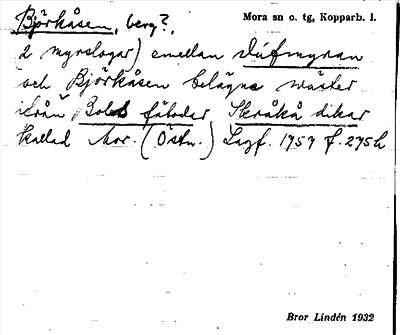 Björkåsen, berg?, Mora sn o. tg, Kopparb. l.
2 myrslogar) emellan Dufmyran
och Björkåsen belägne wäster
ifrån Bolets fäbodar Skråkå dikar
kallad Mor. (Östn.) Lagf. 1757 f. 275 h
Bror Lindén 1932